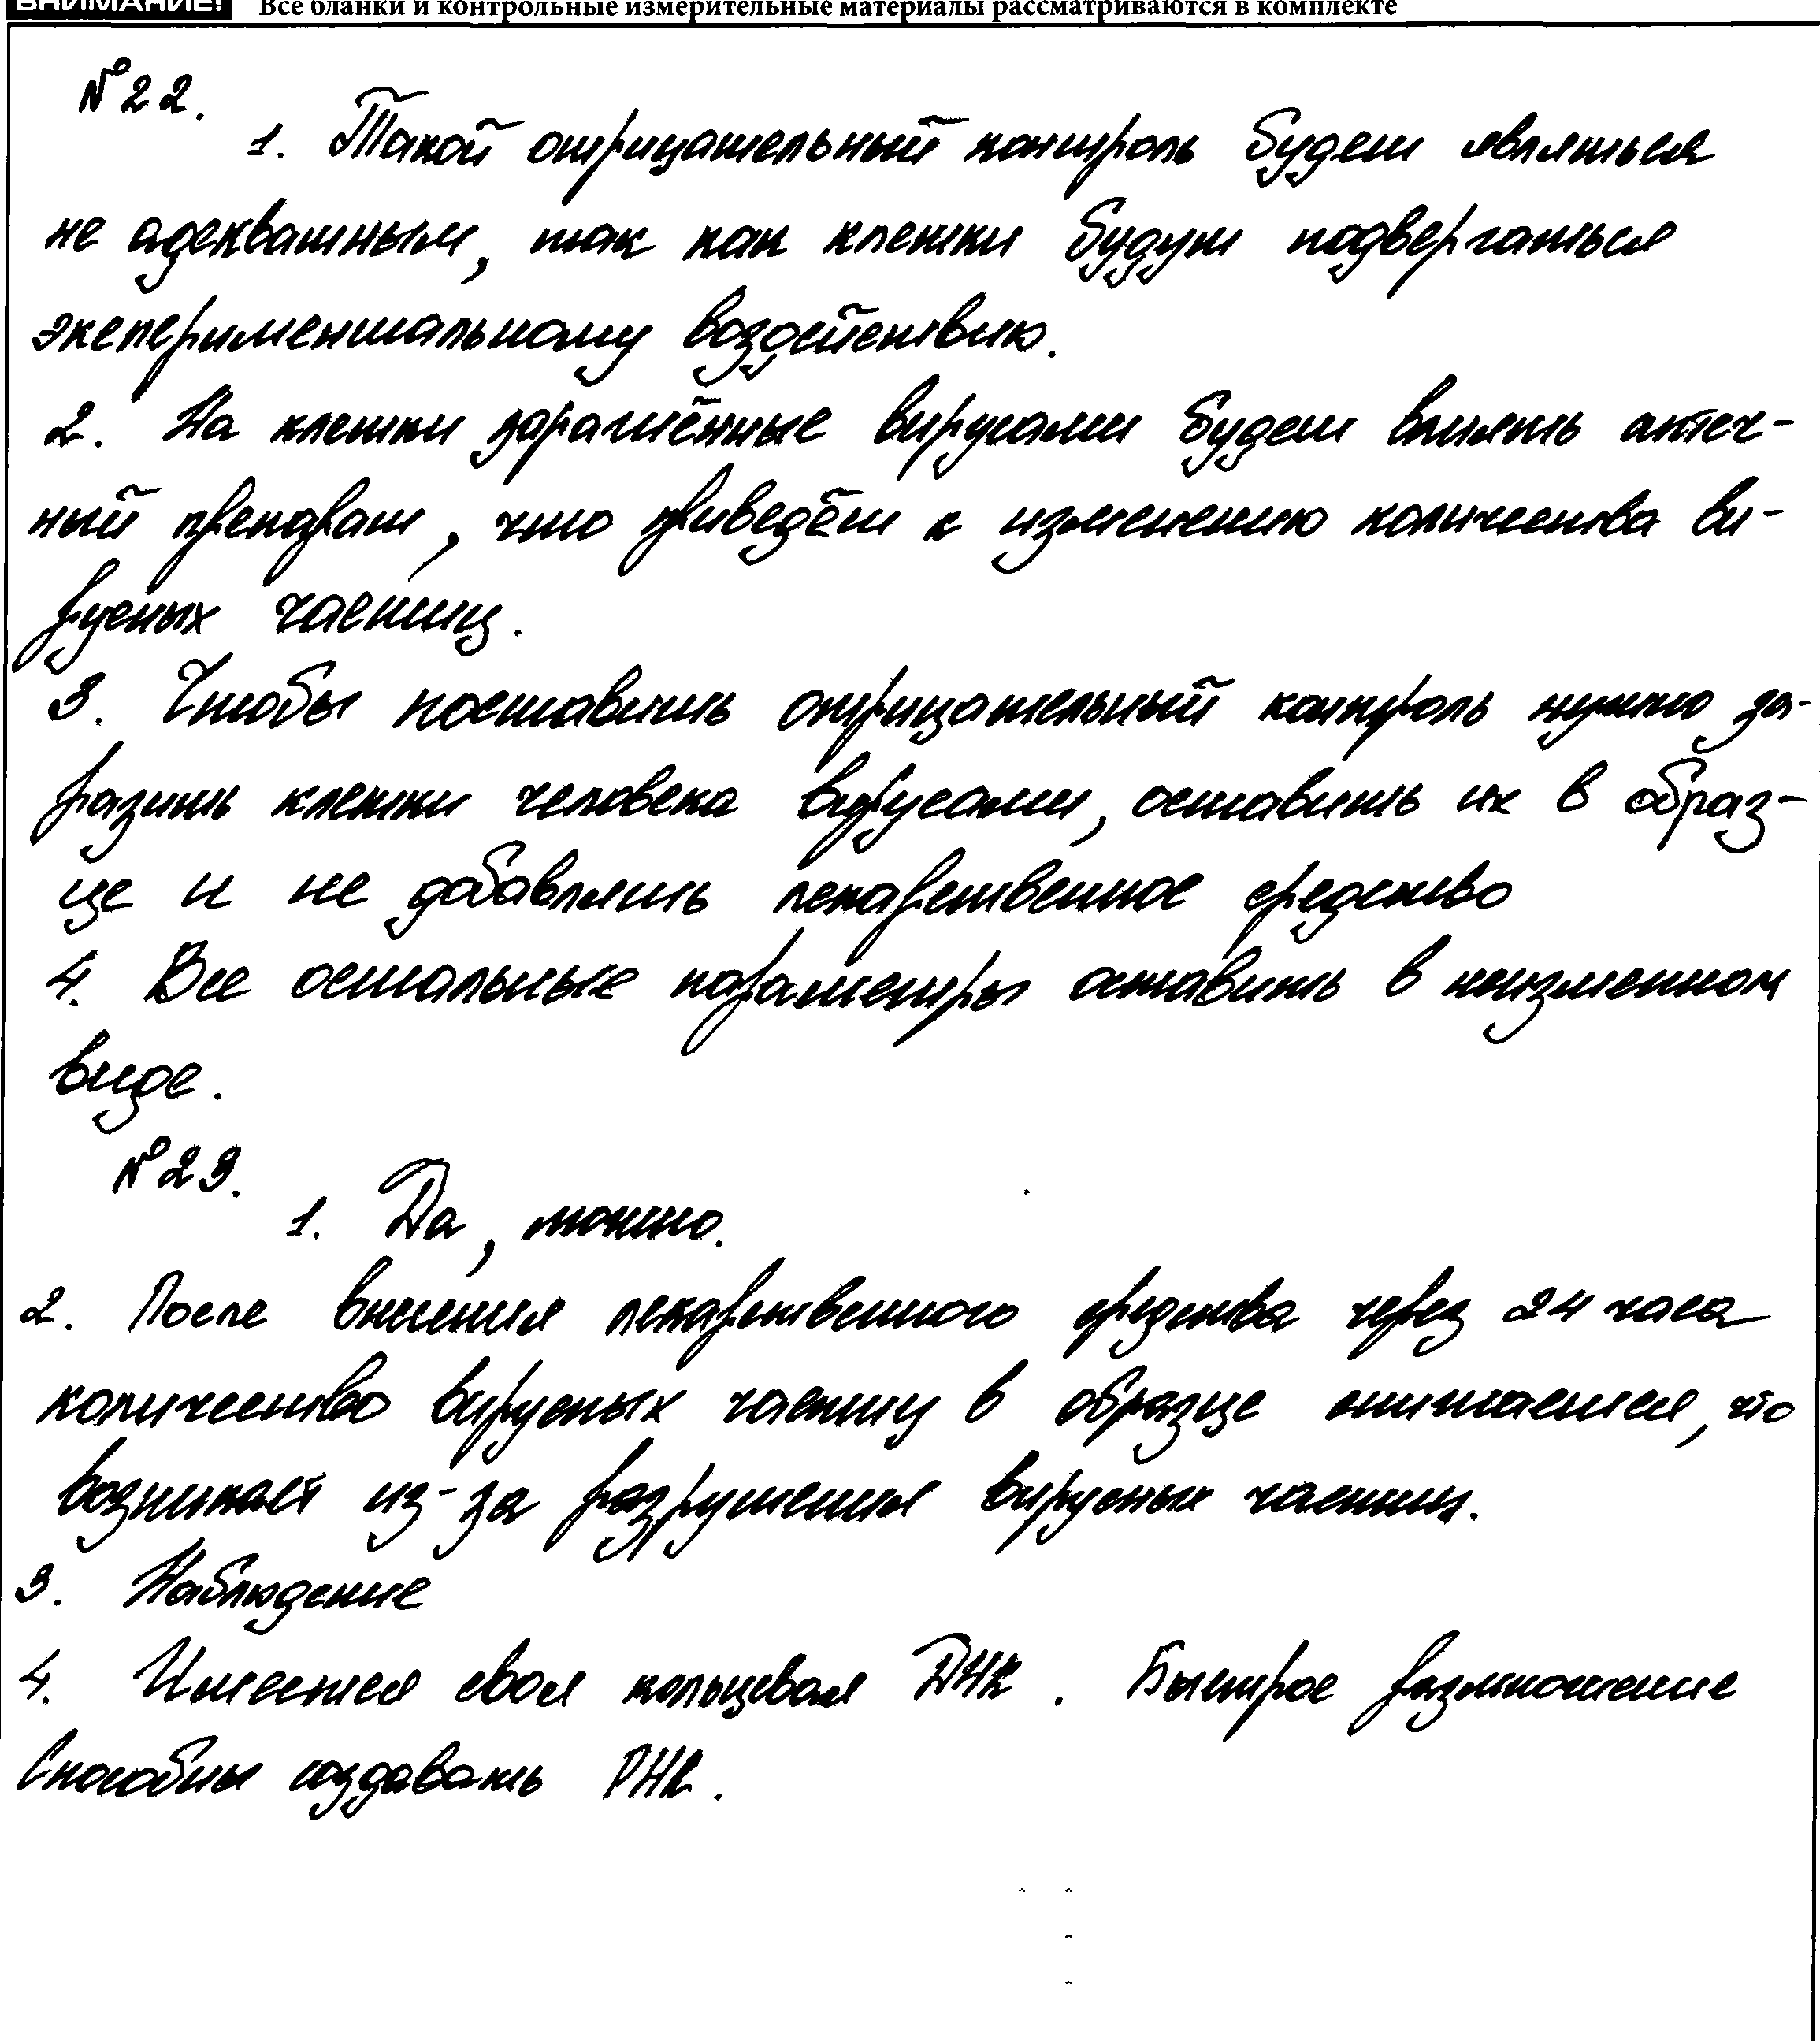 ВНИМАНИЕ! Все бланки и контрольные измерительные материалы рассматриваются в комплекте
№22.
1. Такой отрицательный контроль будет являться
не адекватным, так как клетки будут подвергаться
экспериментальному воздействию.
2. На клетки заражённые вирусами будет влиять аптеч-
ный препарат, что приведёт к изменению количества ви-
русных частиц.
3. Чтобы поставить отрицательный контроль нужно за-
разить клетки человека вирусами, оставить их в образ-
це и не добавлять лекарственное средство
4. Все остальные параметры оставить в неизменном
виде.
№23.
1. Да, можно.
2. После внесения лекарственного средства через 24 часа
количество вирусных частиц в образце снижается, что
возникает из-за разрушения вирусных частиц.
3. Наблюдение
4. Имеется своя кольцевая ДНК. Быстрое размножение
Способны создавать РНК.